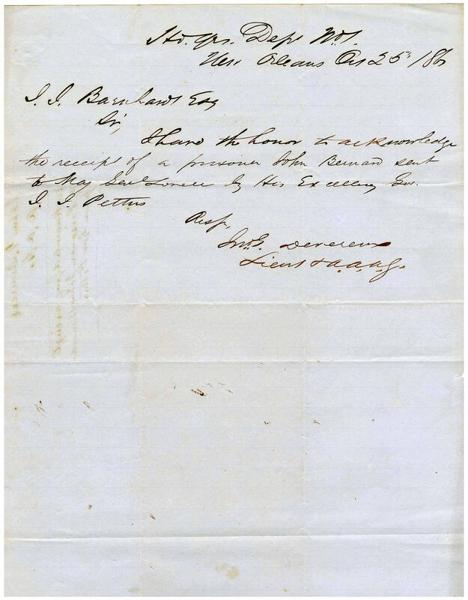 Hd. Qrs. Dept No. 1.
New Orleans Oct 25th 186
J. J. Barnhardt Esq
Sir,
I have the honor to acknowledge
the receipt of a prisoner John Bernard sent
to Maj Genl Lovell by His Excellency Gov.
J. J. Pettus
Resp,
Jno. G. Devereux
Lieut & A.A.A.G.